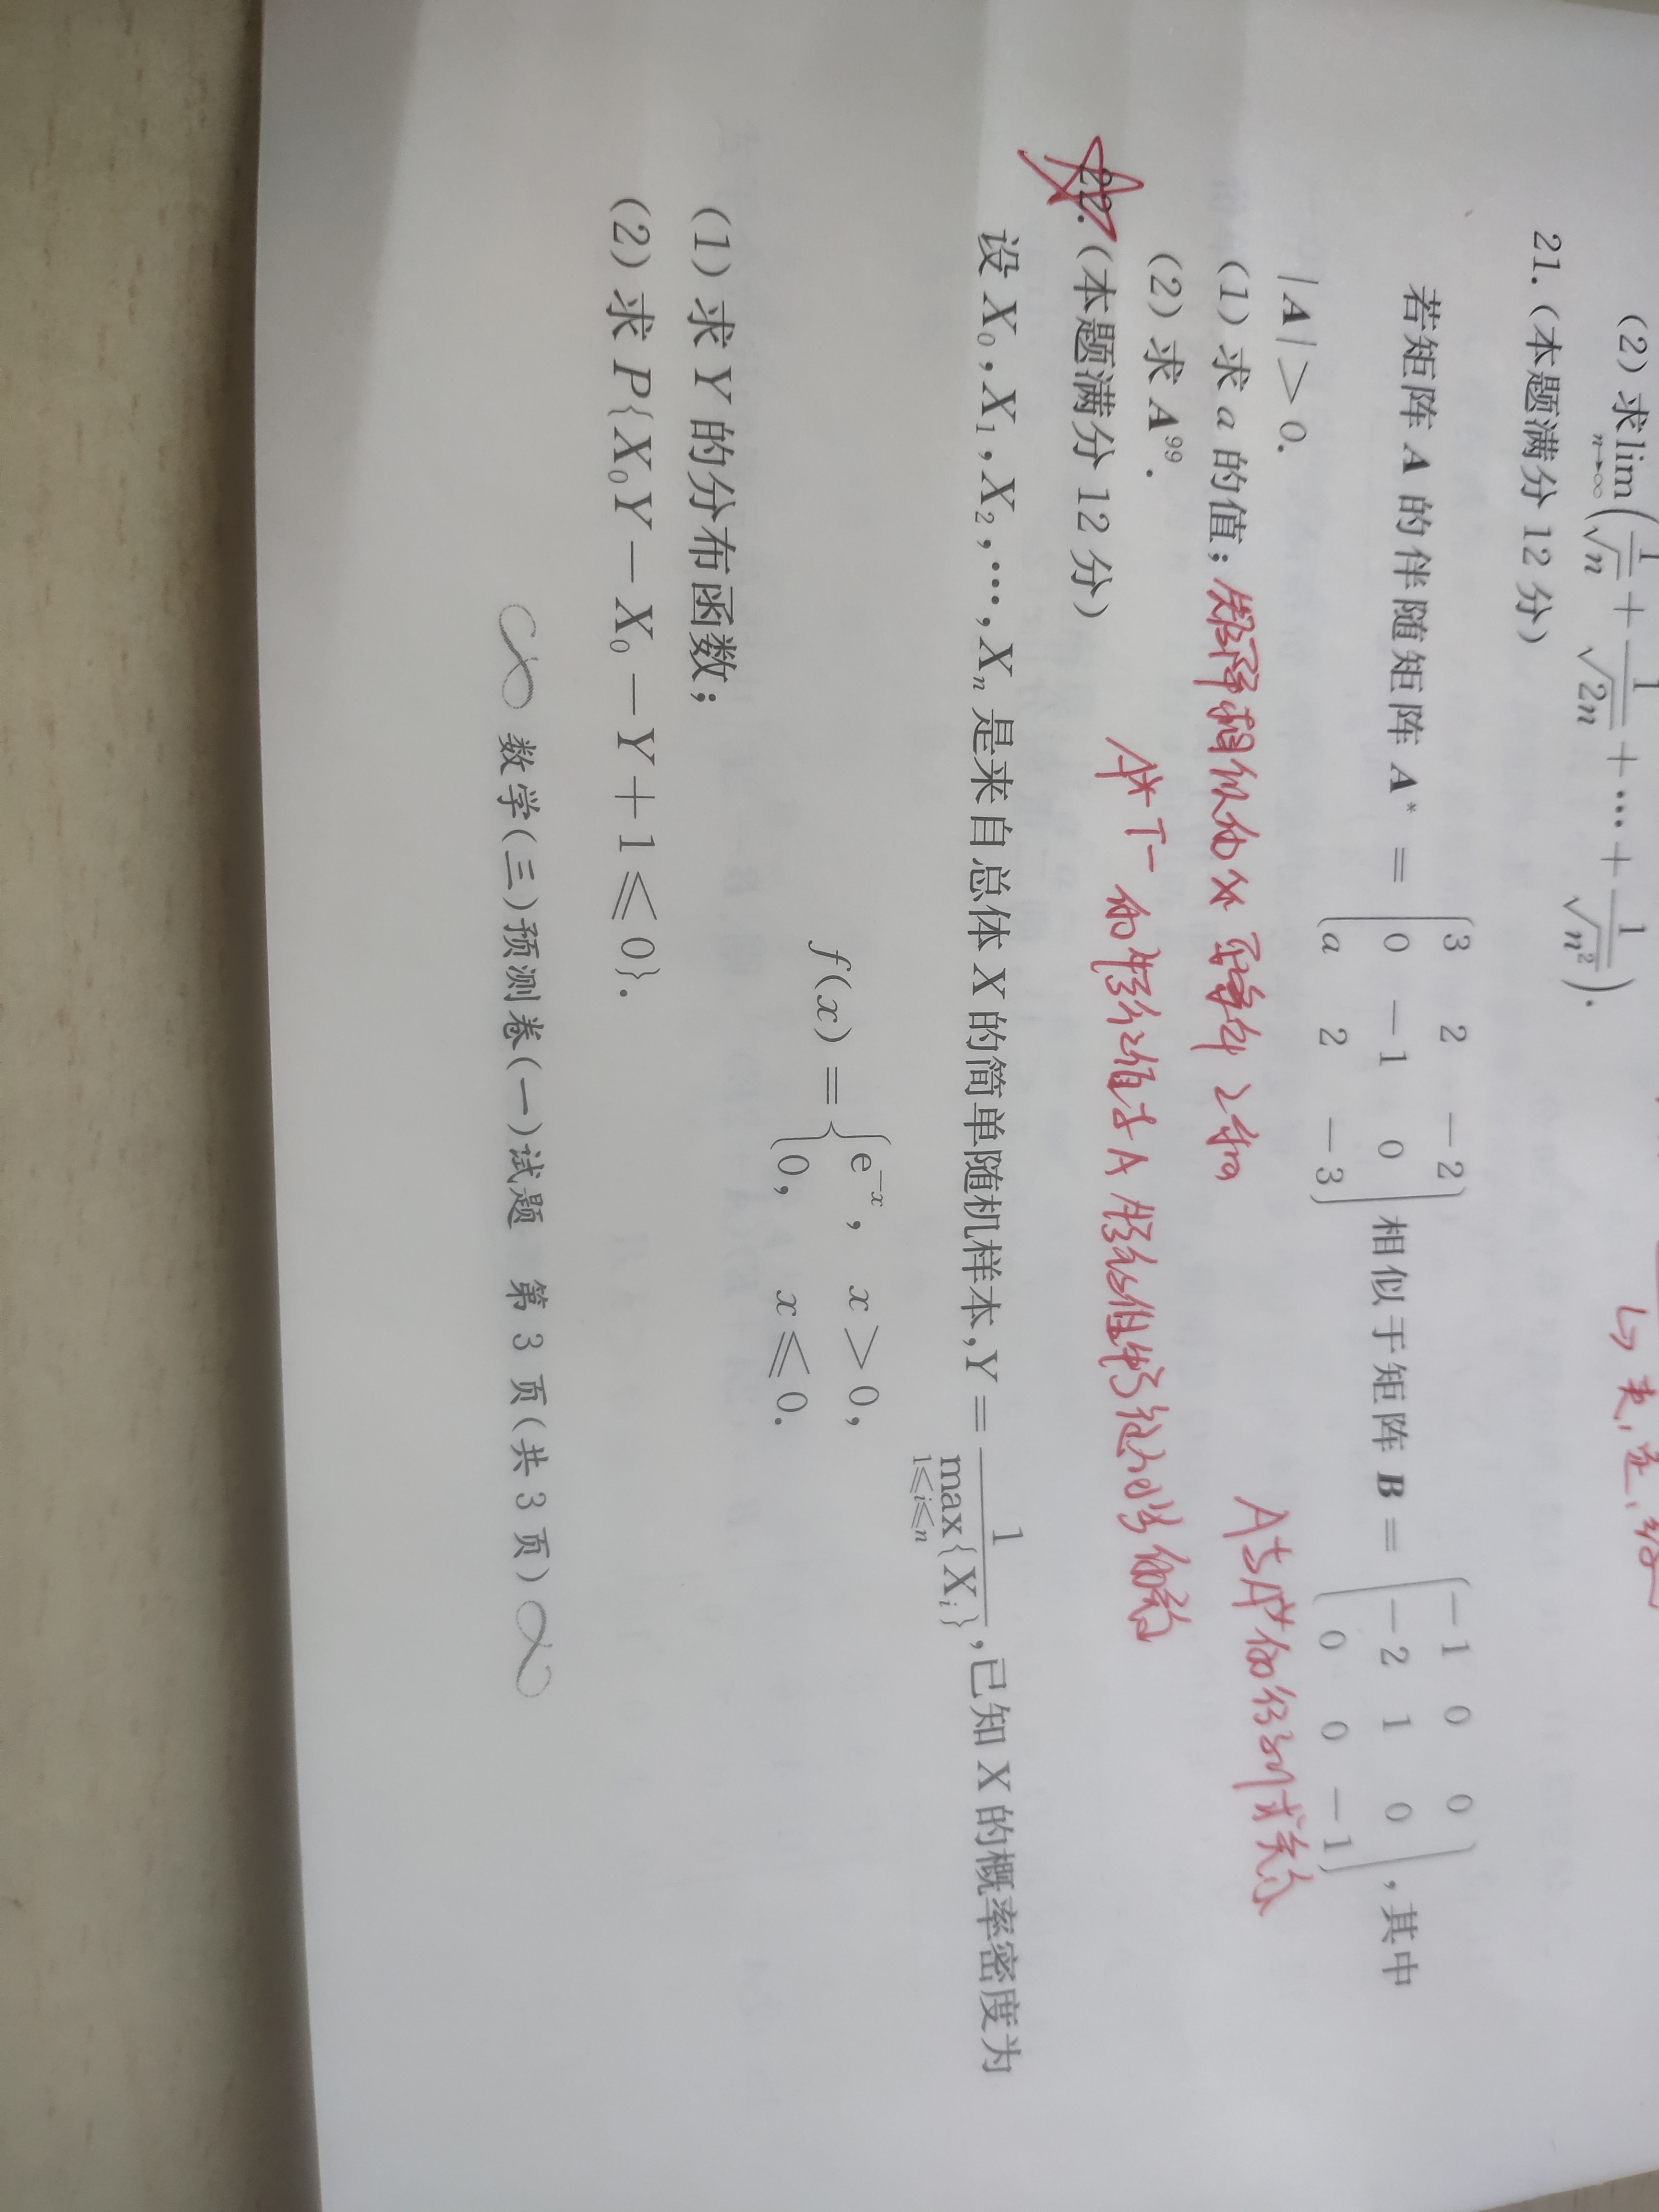 (2) 求 lim n→∞ (1/√n + 1/√2n + ⋯ + 1/√n²).
21. (本题满分 12 分)
若矩阵 A 的伴随矩阵 A* = (3 2 −2; 0 −1 0; a 2 −3) 相似于矩阵 B = (−1 0 0; −2 1 0; 0 0 −1), 其中
|A| > 0.
(1) 求 a 的值; 矩阵相似的 条件
(2) 求 A⁹⁹.
A与A*的 关系
22. (本题满分 12 分)
A* 的特征值与A特征值 的关系
设 X₀, X₁, X₂, ⋯, Xₙ 是来自总体 X 的简单随机样本, Y = 1/max{Xᵢ} 1≤i≤n, 已知 X 的概率密度为
f(x) = { e⁻ˣ, x > 0,
0, x ≤ 0.
(1) 求 Y 的分布函数;
(2) 求 P{X₀Y − X₀ − Y + 1 ≤ 0}.
数学(三)预测卷(一)试题 第 3 页(共 3 页)